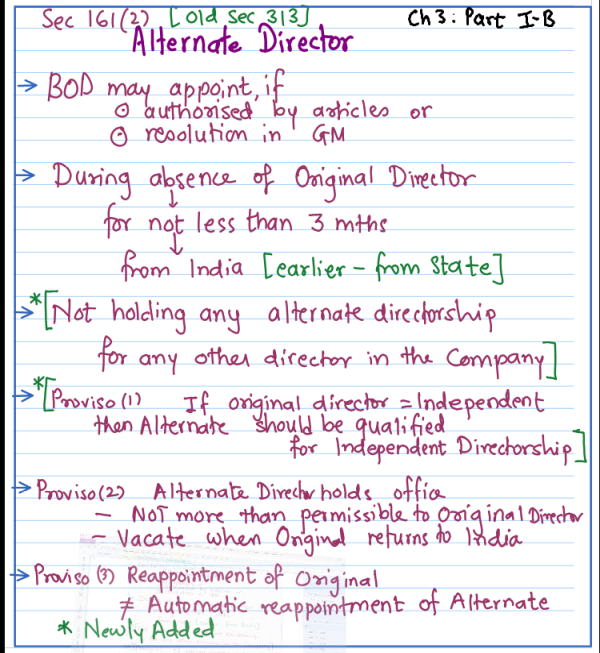 Sec 161(2) [old Sec 313] Ch 3: Part I-B
Alternate Director
→ BOD may appoint, if
⊙ authorised by articles or
⊙ resolution in GM
→ During absence of Original Director
↓
for not less than 3 mths
↓
from India [earlier - from State]
→ *[Not holding any alternate directorship
for any other director in the Company]
→ *[Proviso (1) If original director = Independent
then Alternate should be qualified
for Independent Directorship]
→ Proviso (2) Alternate Director holds office
- NOT more than permissible to Original Director
- Vacate when Original returns to India
→ Proviso (3) Reappointment of Original
≠ Automatic reappointment of Alternate
* Newly Added